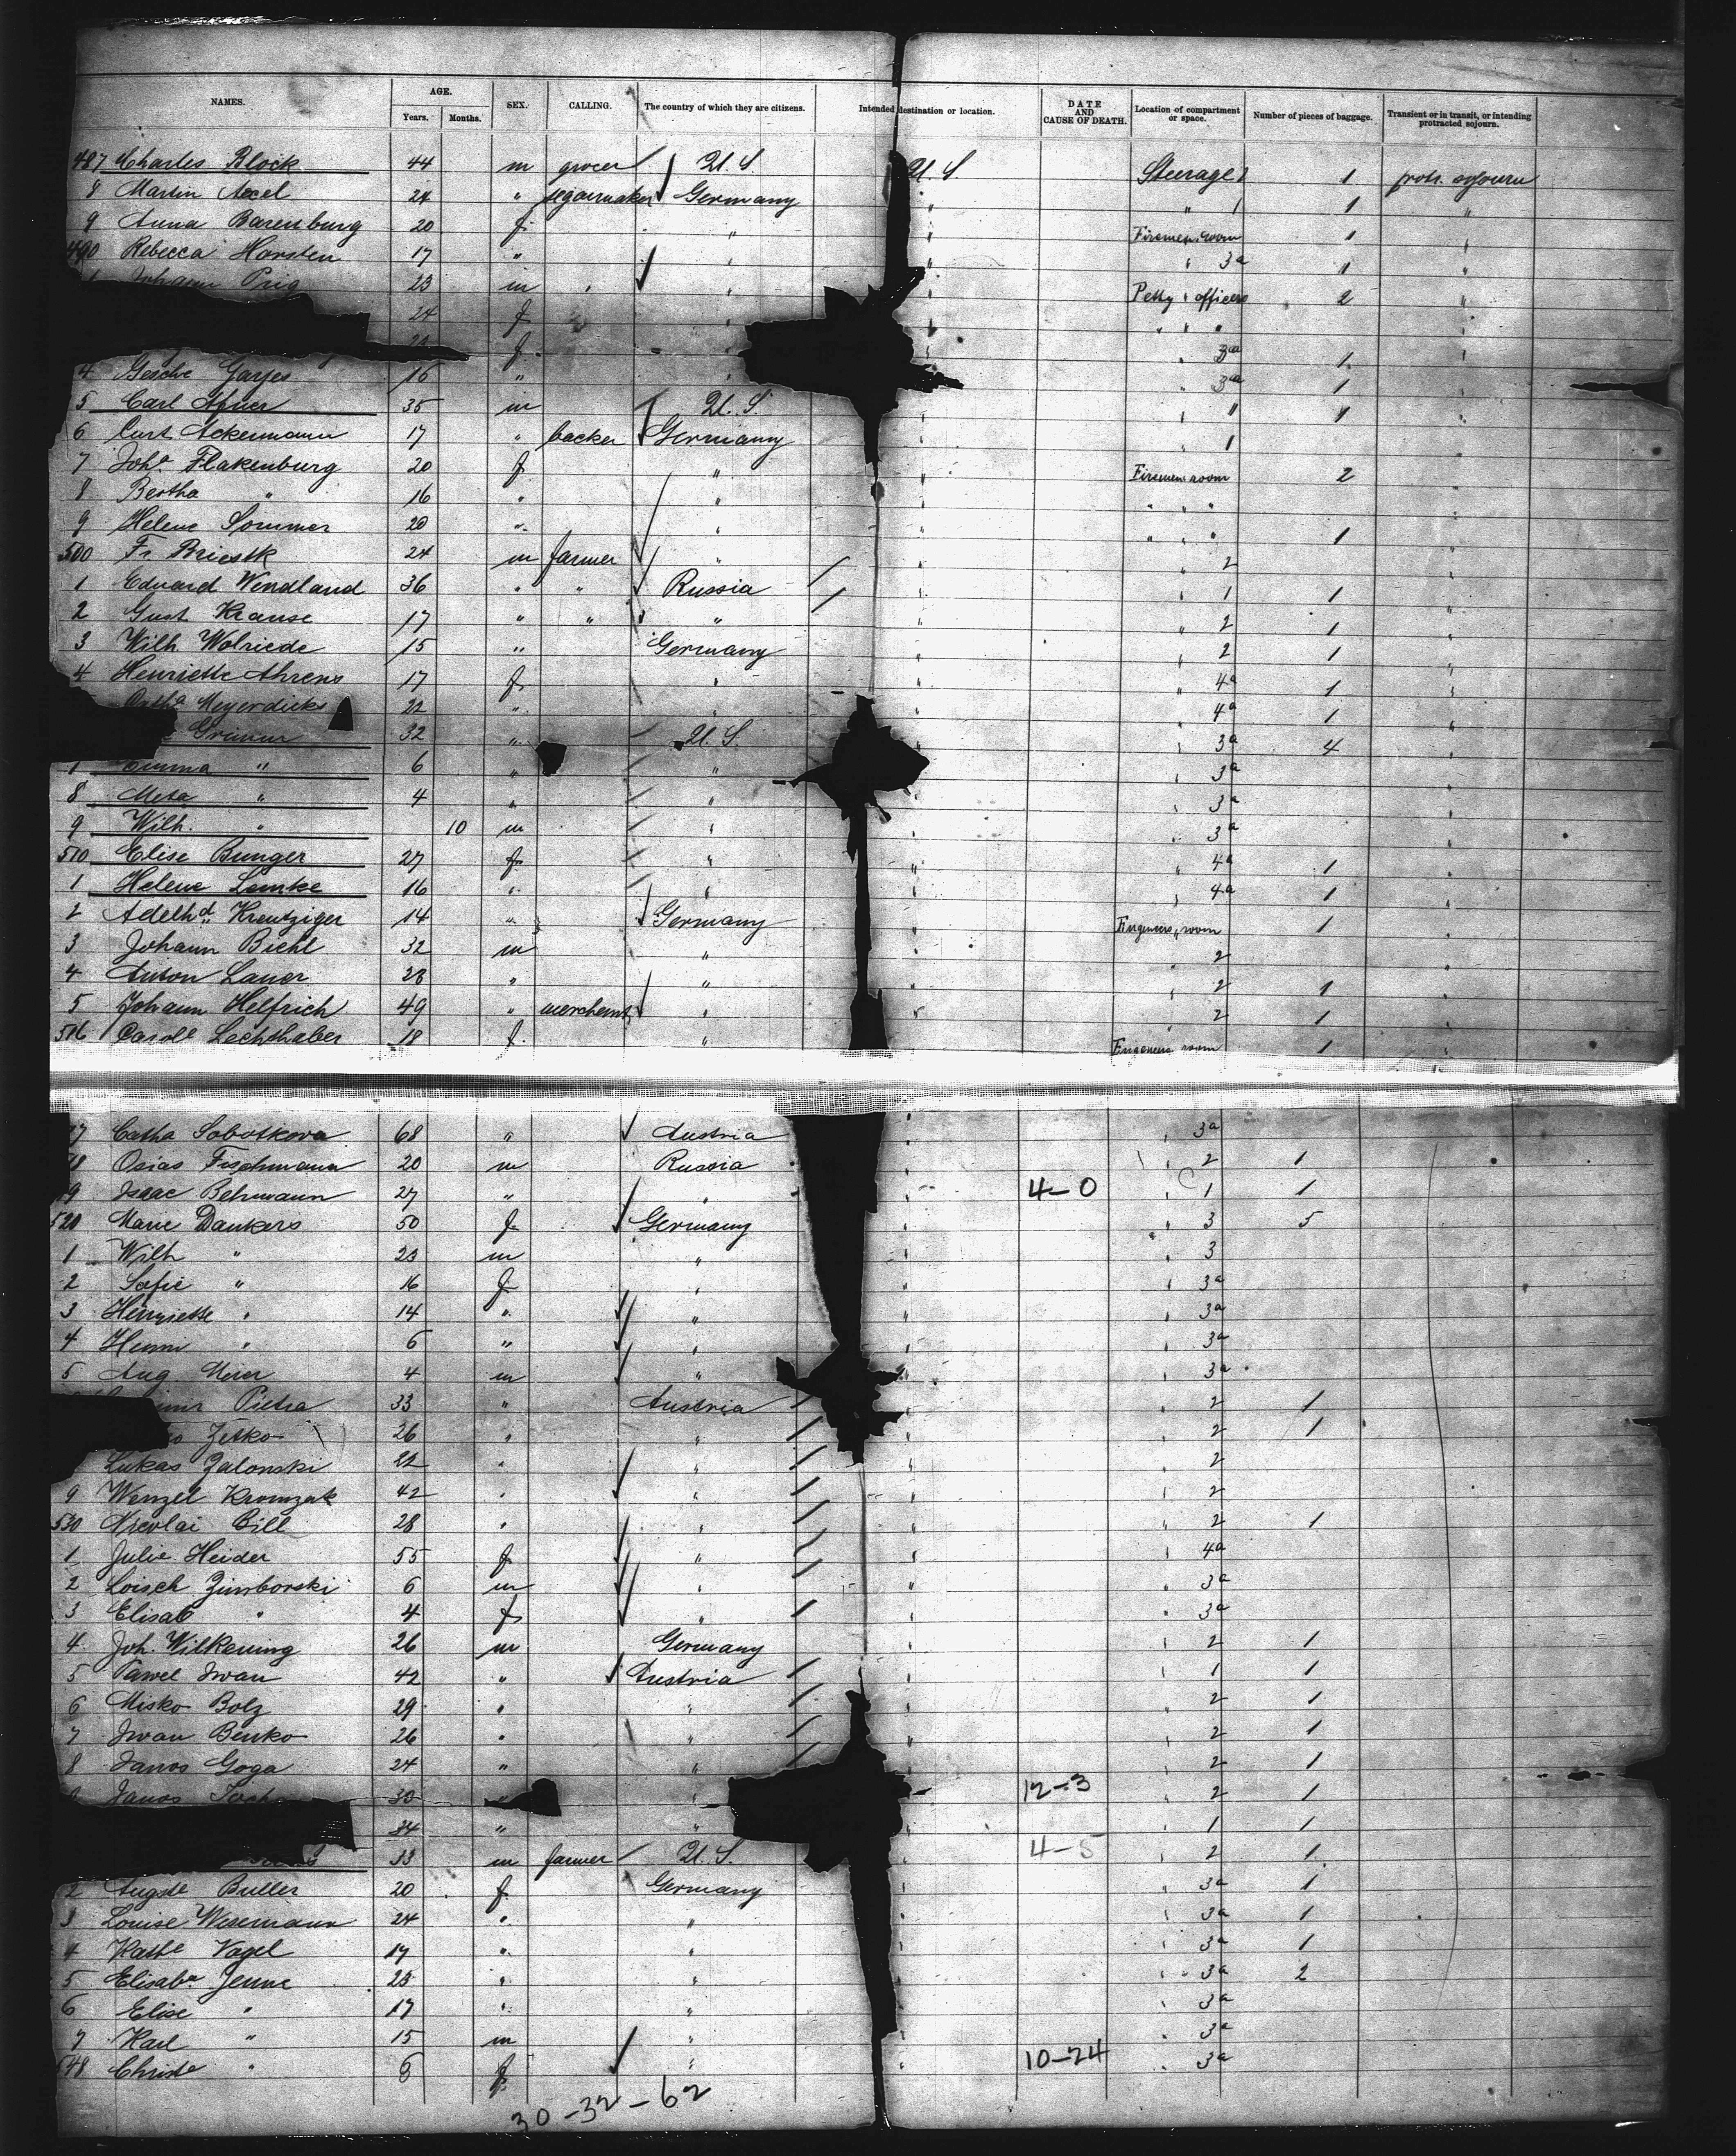 NAMES. AGE. SEX. CALLING. The country of which they are citizens. Intended destination or location. DATE AND CAUSE OF DEATH. Location of compartment or space. Number of pieces of baggage. Transient or in transit, or intending protracted sojourn.
Years. Months.
487 Charles Block 44 m grocer U. S. U. S Steerage 1 1 protr. sojourn
8 Martin Axel 24 " segarmaker Germany " " 1 1 "
9 Anna Barenburg 20 f. " " Firemen room 1 "
490 Rebecca Horsten 17 " " " " 3a 1 "
Johann Prig 23 m " " " Petty officers 2 "
24 f " " " " "
f. " 3a 1 "
4 Gesche Garjes 16 " " " 3a 1
5 Carl 35 m U. S. " " " 1
6 Curt Ackermann 17 " backer Germany " 1
7 Joha Flakenburg 20 f " " Firemen room 2 "
8 Bertha " 16 " " " " " "
9 Helene Sommer 20 " " " " " " 1 "
500 Fr. Briestk 24 m farmer " " " 2 "
1 Eduard Wendland 36 " " Russia " " 1 1 "
2 Gust Krause 17 " " " " " 2 1 "
3 Wilh Wolriede 15 " Germany " " 2 1 "
4 Henriette Ahrens 17 f " " " 4a 1 "
Catha Meyerdicks 22 " " " " 4a 1 "
Grimm 32 " U. S. " 3a 4 "
Emma " 6 " " " 3a "
8 Meta " 4 " " " 3a "
9 Wilh. " 10 m " " 3a "
510 Elise Bunger 27 f " " " 4a 1 "
1 Helene Lemke 16 " " " " 4a 1 "
2 Adelhd Kreutziger 14 " Germany " Engeneers room 1 "
3 Johann Biehl 32 m " " " 2 "
4 Anton Lauer 28 " " " " 2 1 "
5 Johann Helfrich 49 " merchant " " " 2 1 "
516 Carole Lechthaber 18 f. " Engeneers room 1 "
17 Catha Sobotkova 68 " Austria " " 3a
18 Osias Fischmann 20 m Russia " " 2 1
19 Isaac Behrmann 27 " " " 4-0 " 1 1
520 Marie Dankers 50 f Germany " " 3 5
1 Wilh " 23 m " " " 3
2 Sofie " 16 f " " " 3a
3 Henriette " 14 " " " " 3a
4 Henni " 6 " " " " 3a
5 Aug Meier 4 m " " " 3a
Pietra 33 " Austria " 2 1
Zetko 26 " " " 2 1
Lukas Zalonski 22 " " " 2
9 Wenzel Kromzak 42 " " " " 2
530 Nicolai Bill 28 " " " " 2 1
1 Julie Heider 55 f " " " 4a
2 Loisch Zimborski 6 m " " " 3a
3 Elisab " 4 f " " " 3a
4 Joh. Wilkening 26 m Germany " " 2 1
5 Pawel Iwan 42 " Austria " " 1 1
6 Misko Bolz 29 " " " " 2 1
7 Iwan Benko 26 " " " " 2 1
8 Janos Goga 24 " " " " 2 1
9 Janos 30 " " " 12-3 " 2 1
34 " " " " 1 1
33 m farmer U. S. " 4-5 " 2 1
2 Auguste Buller 20 f. Germany " " 3a 1
3 Louise Wesemann 24 " " " " 3a 1
4 Kathe Vogel 17 " " " " 3a 1
5 Elisaba Jenne 23 " " " " 3a 2
6 Elise " 17 " " " " 3a
7 Karl " 15 m " " " 3a
548 Christe " 8 f. " " 10-24 " 3a
30-32-62